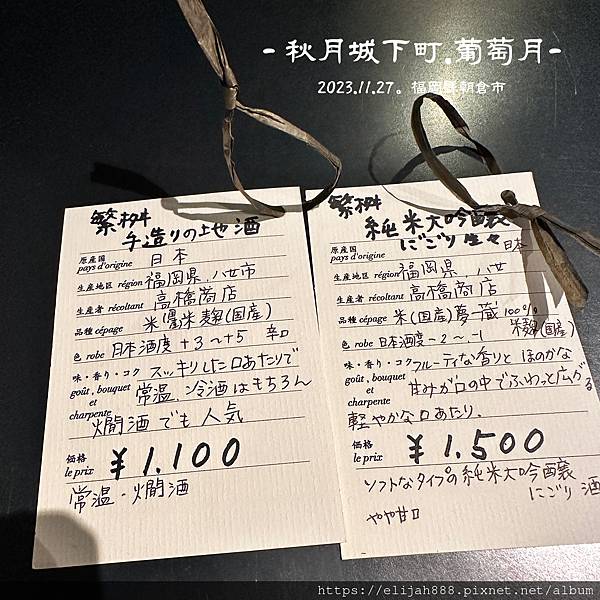 - 秋月城下町.葡萄月-
2023.11.27。福岡縣朝倉市
繁桝
手造りの地酒
原産国
pays d'origine 日本
生産地区 région 福岡県,八女市
生産者 récoltant 高橋商店
品種 cépage 米、米麹(国産)
色 robe 日本酒度 +3~+5 辛口
味・香り・コク スッキリした口あたりで
goût, bouquet et charpente 常温、冷酒はもちろん
燗酒でも人気
価格
le prix ¥1.100
常温・燗酒
繁桝
純米大吟醸
にごり生々
原産国
pays d'origine 日本
生産地区 région 福岡県,八女
生産者 récoltant 高橋商店
品種 cépage 米(国産)夢一献100%
米麹(国産)
色 robe 日本酒度-2~-1
味・香り・コク フルーティな香りと ほのかな
goût, bouquet et charpente 甘みが口の中でふわっと広がる
軽やかな口あたり.
価格
le prix ¥1.500
ソフトなタイプの純米大吟醸
にごり酒
やや甘口
https://elijah888.pixnet.net/album